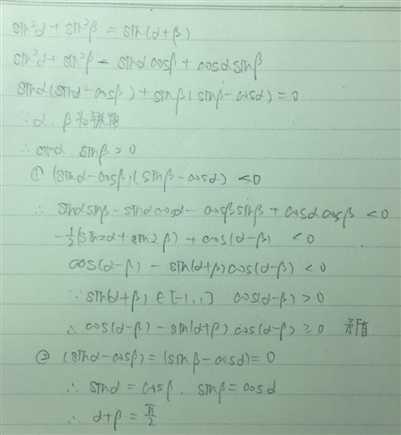 sin²α + sin²β = sin(α+β)
sin²α + sin²β = sinα cosβ + cosα sinβ
sinα(sinα - cosβ) + sinβ(sinβ - cosα) = 0
∵ α. β为锐角
∴ sinα. sinβ > 0
① (sinα - cosβ)(sinβ - cosα) < 0
∴ sinα sinβ - sinα cosα - cosβ sinβ + cosα cosβ < 0
-½(sin2α + sin2β) + cos(α-β) < 0
cos(α-β) - sin(α+β)cos(α-β) < 0
∵ sin(α+β) ∈ [-1,1] cos(α-β) > 0
∴ cos(α-β) - sin(α+β)cos(α-β) ≥ 0 矛盾
② (sinα - cosβ) = (sinβ - cosα) = 0
∴ sinα = cosβ. sinβ = cosα
∴ α+β = π/2